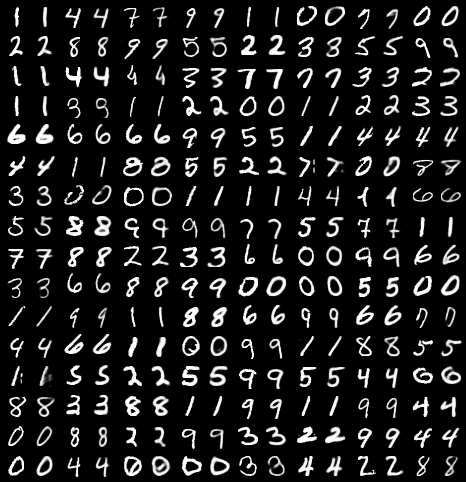 1 1 4 4 7 7 9 9 1 1 0 0 7 7 0 0
2 2 8 8 9 9 5 5 2 2 3 8 5 5 9 9
1 1 4 4 4 4 3 3 7 7 7 7 3 3 2 2
1 1 3 9 1 1 2 2 0 0 1 1 2 2 3 3
6 6 6 6 6 6 9 9 5 5 1 1 4 4 4 4
4 4 1 1 8 8 5 5 2 2 7 7 0 0 8 8
3 3 0 0 0 0 1 1 1 1 4 4 1 1 6 6
5 5 8 8 9 9 9 9 7 7 5 5 7 7 1 1
7 7 8 8 2 2 3 3 6 6 0 0 9 9 6 6
3 3 6 6 8 8 9 9 0 0 0 0 5 5 0 0
1 1 9 9 1 1 8 8 6 6 9 9 6 6 7 7
4 4 6 6 1 1 0 0 9 9 1 1 8 8 5 5
1 6 5 5 2 2 5 5 9 9 5 5 4 4 6 6
8 8 3 3 8 8 1 1 9 9 1 1 9 9 4 4
0 0 8 8 2 2 9 9 3 3 2 2 9 9 4 4
0 0 4 4 0 0 0 0 3 3 4 4 2 2 8 8